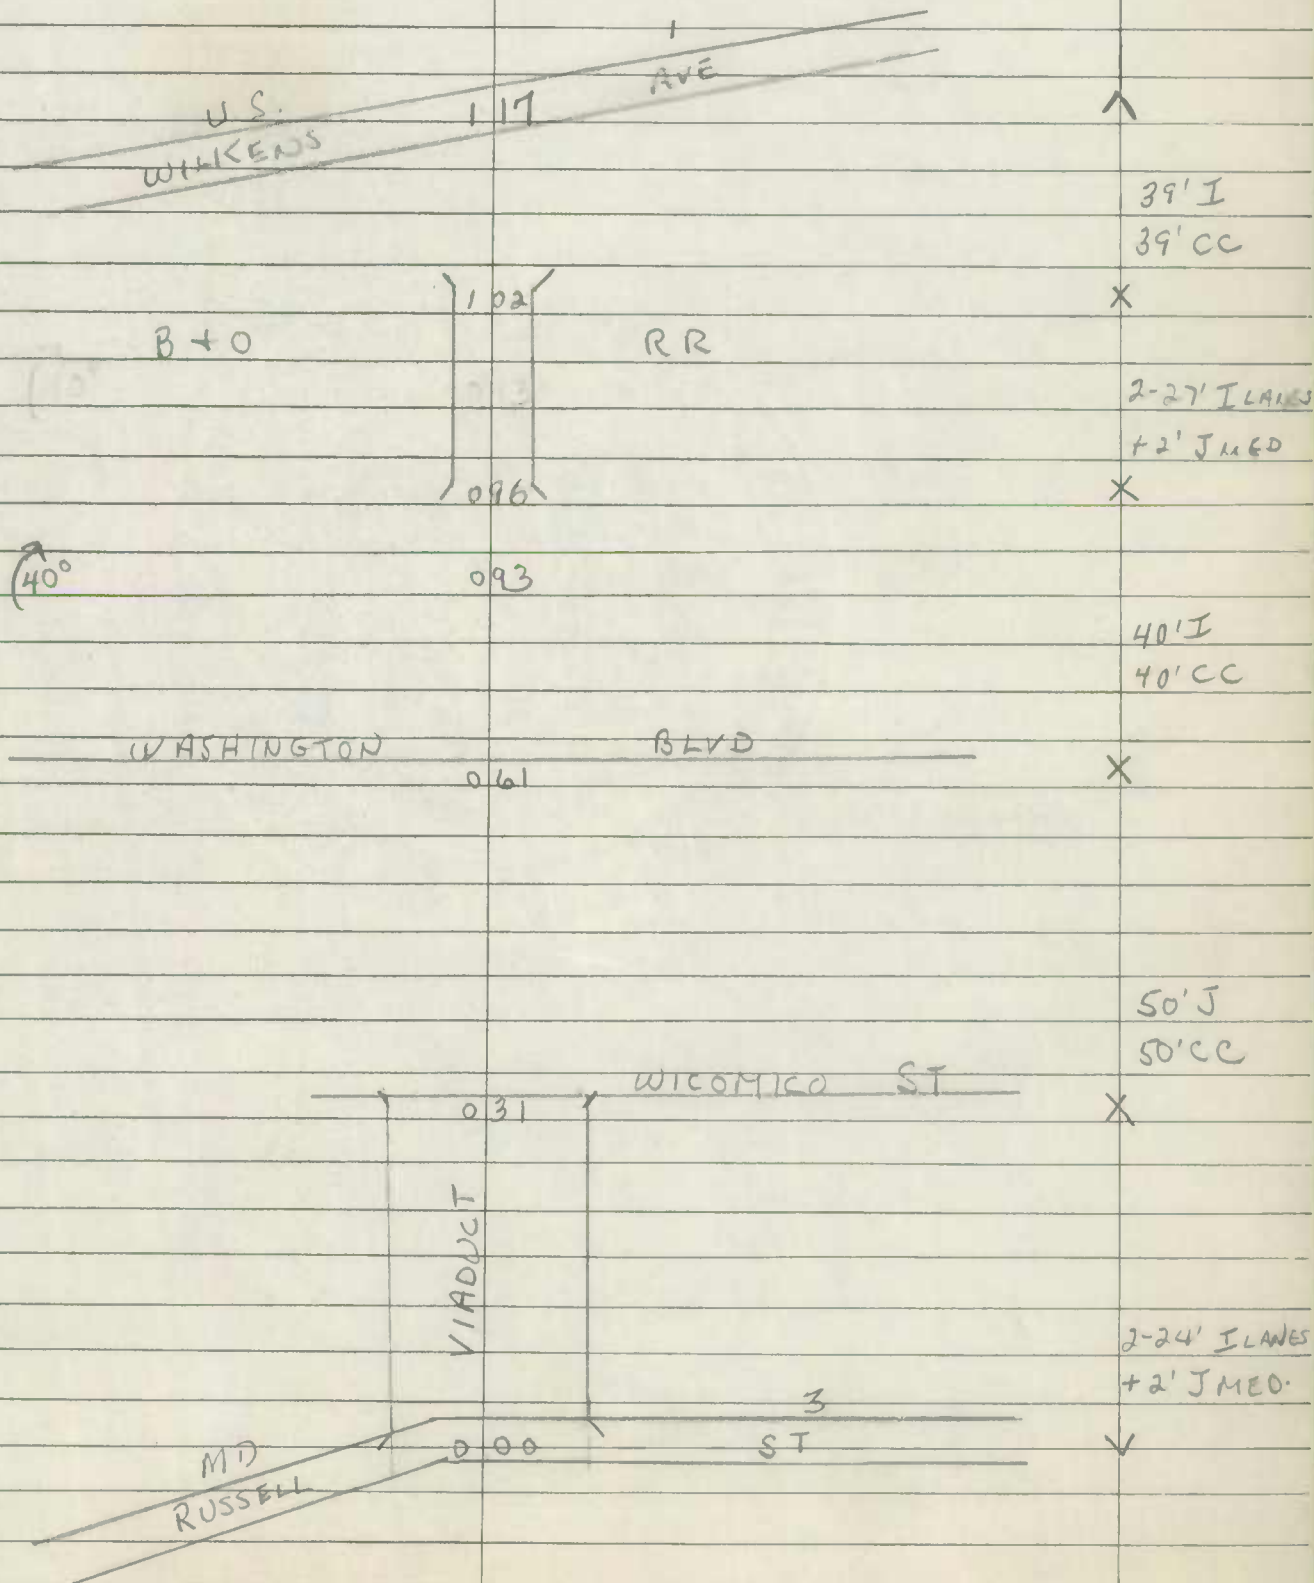 1
U.S. 1 17 AVE
WILKENS
39' I
39' CC
1 02
B + O RR
2-27' I LANES
+ 2' J MED
0 96
40° 0 93
40' I
40' CC
WASHINGTON BLVD
0 61
50' J
50' CC
WICOMICO ST
0 31
VIADUCT
2-24' I LANES
+ 2' J MED.
3
MD 0 00 ST
RUSSELL